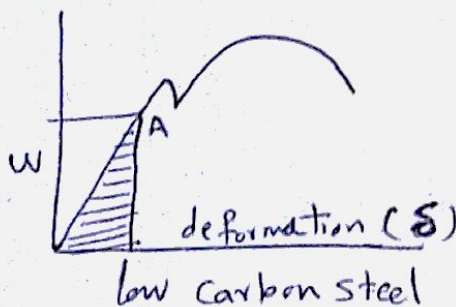 A
W
deformation (δ)
low carbon steel